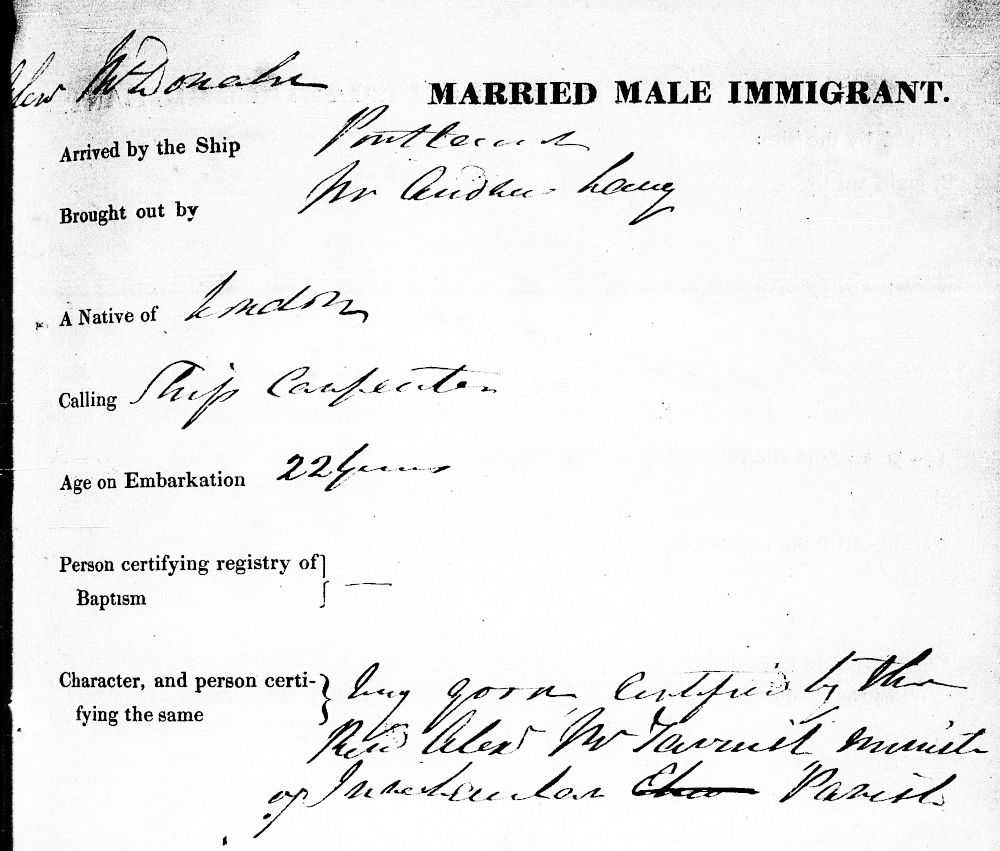 Alexr McDonald
MARRIED MALE IMMIGRANT.
Arrived by the Ship Portland
Brought out by Mr Andrew Lang
A Native of London
Calling Ship Carpenter
Age on Embarkation 22 years
Person certifying registry of
Baptism —
Character, and person certi- Very good, Certified by the
fying the same Revd Alexr McTavish minister
of Parish